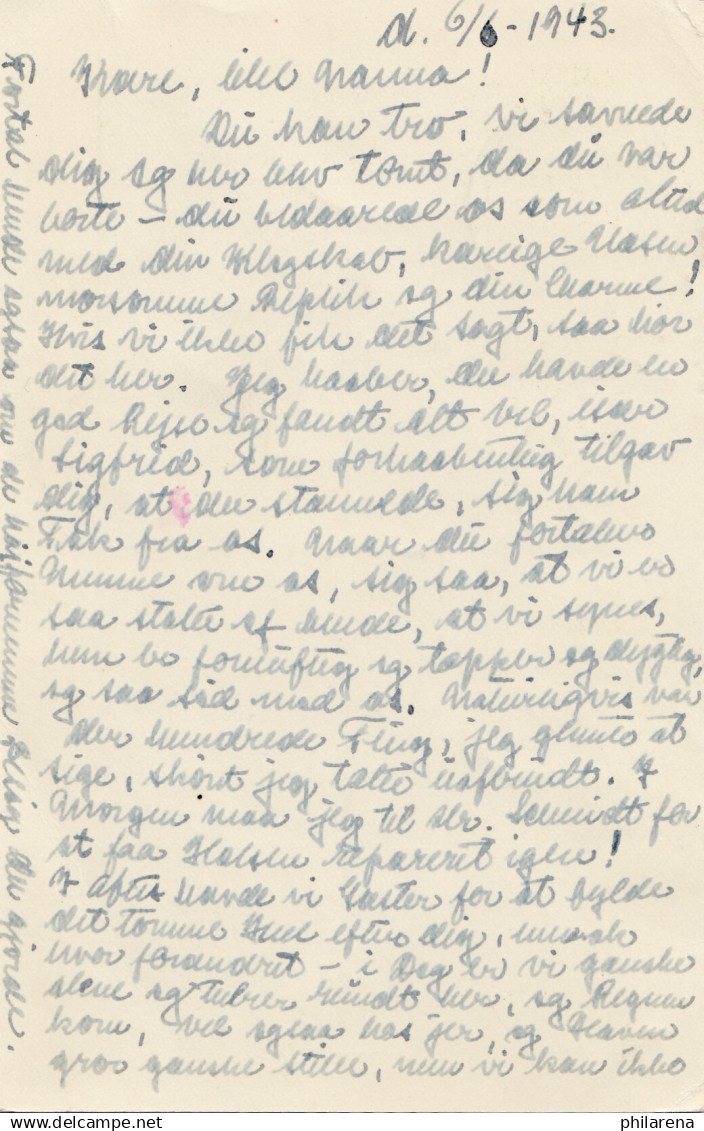 d. 6/6-1943.
Kære, lille Nanna!
Du kan tro, vi savnede
dig og her blev tomt, da du var
borte - du bedaarede os som altid
med din Klogskab, kærlige Væsen
morsomme Replik og din Charme!
Hvis vi ikke fik det sagt, saa hør
det her. Jeg haaber, du havde en
god Rejse og fandt alt vel, især
Sigfrid, som forhaabentlig tilgav
dig, at du stammede, sig ham
Tak fra os. Naar du fortæller
Mumme om os, sig saa, at vi er
saa stolte af hende, at vi synes,
hun er fornuftig og tapper og dygtig,
og saa sød mod os. Naturligvis var
der hundrede Ting, jeg glemte at
sige, skønt jeg talte uafbrudt. I
Morgen maa jeg til Dr. Schmidt for
at faa Halsen repareret igen!
I Aftes havde vi Gæster for at fylde
det tomme Hul efter dig, men ak
hvor forandret - i Dag er vi ganske
alene og tusser rundt her, og Regnen
kom, vel ogsaa hos jer, og Haven
gror ganske stille, men vi kan ikke
Fortæl hende ogsaa om de Besøg du gjorde.
philarena
philarena.com